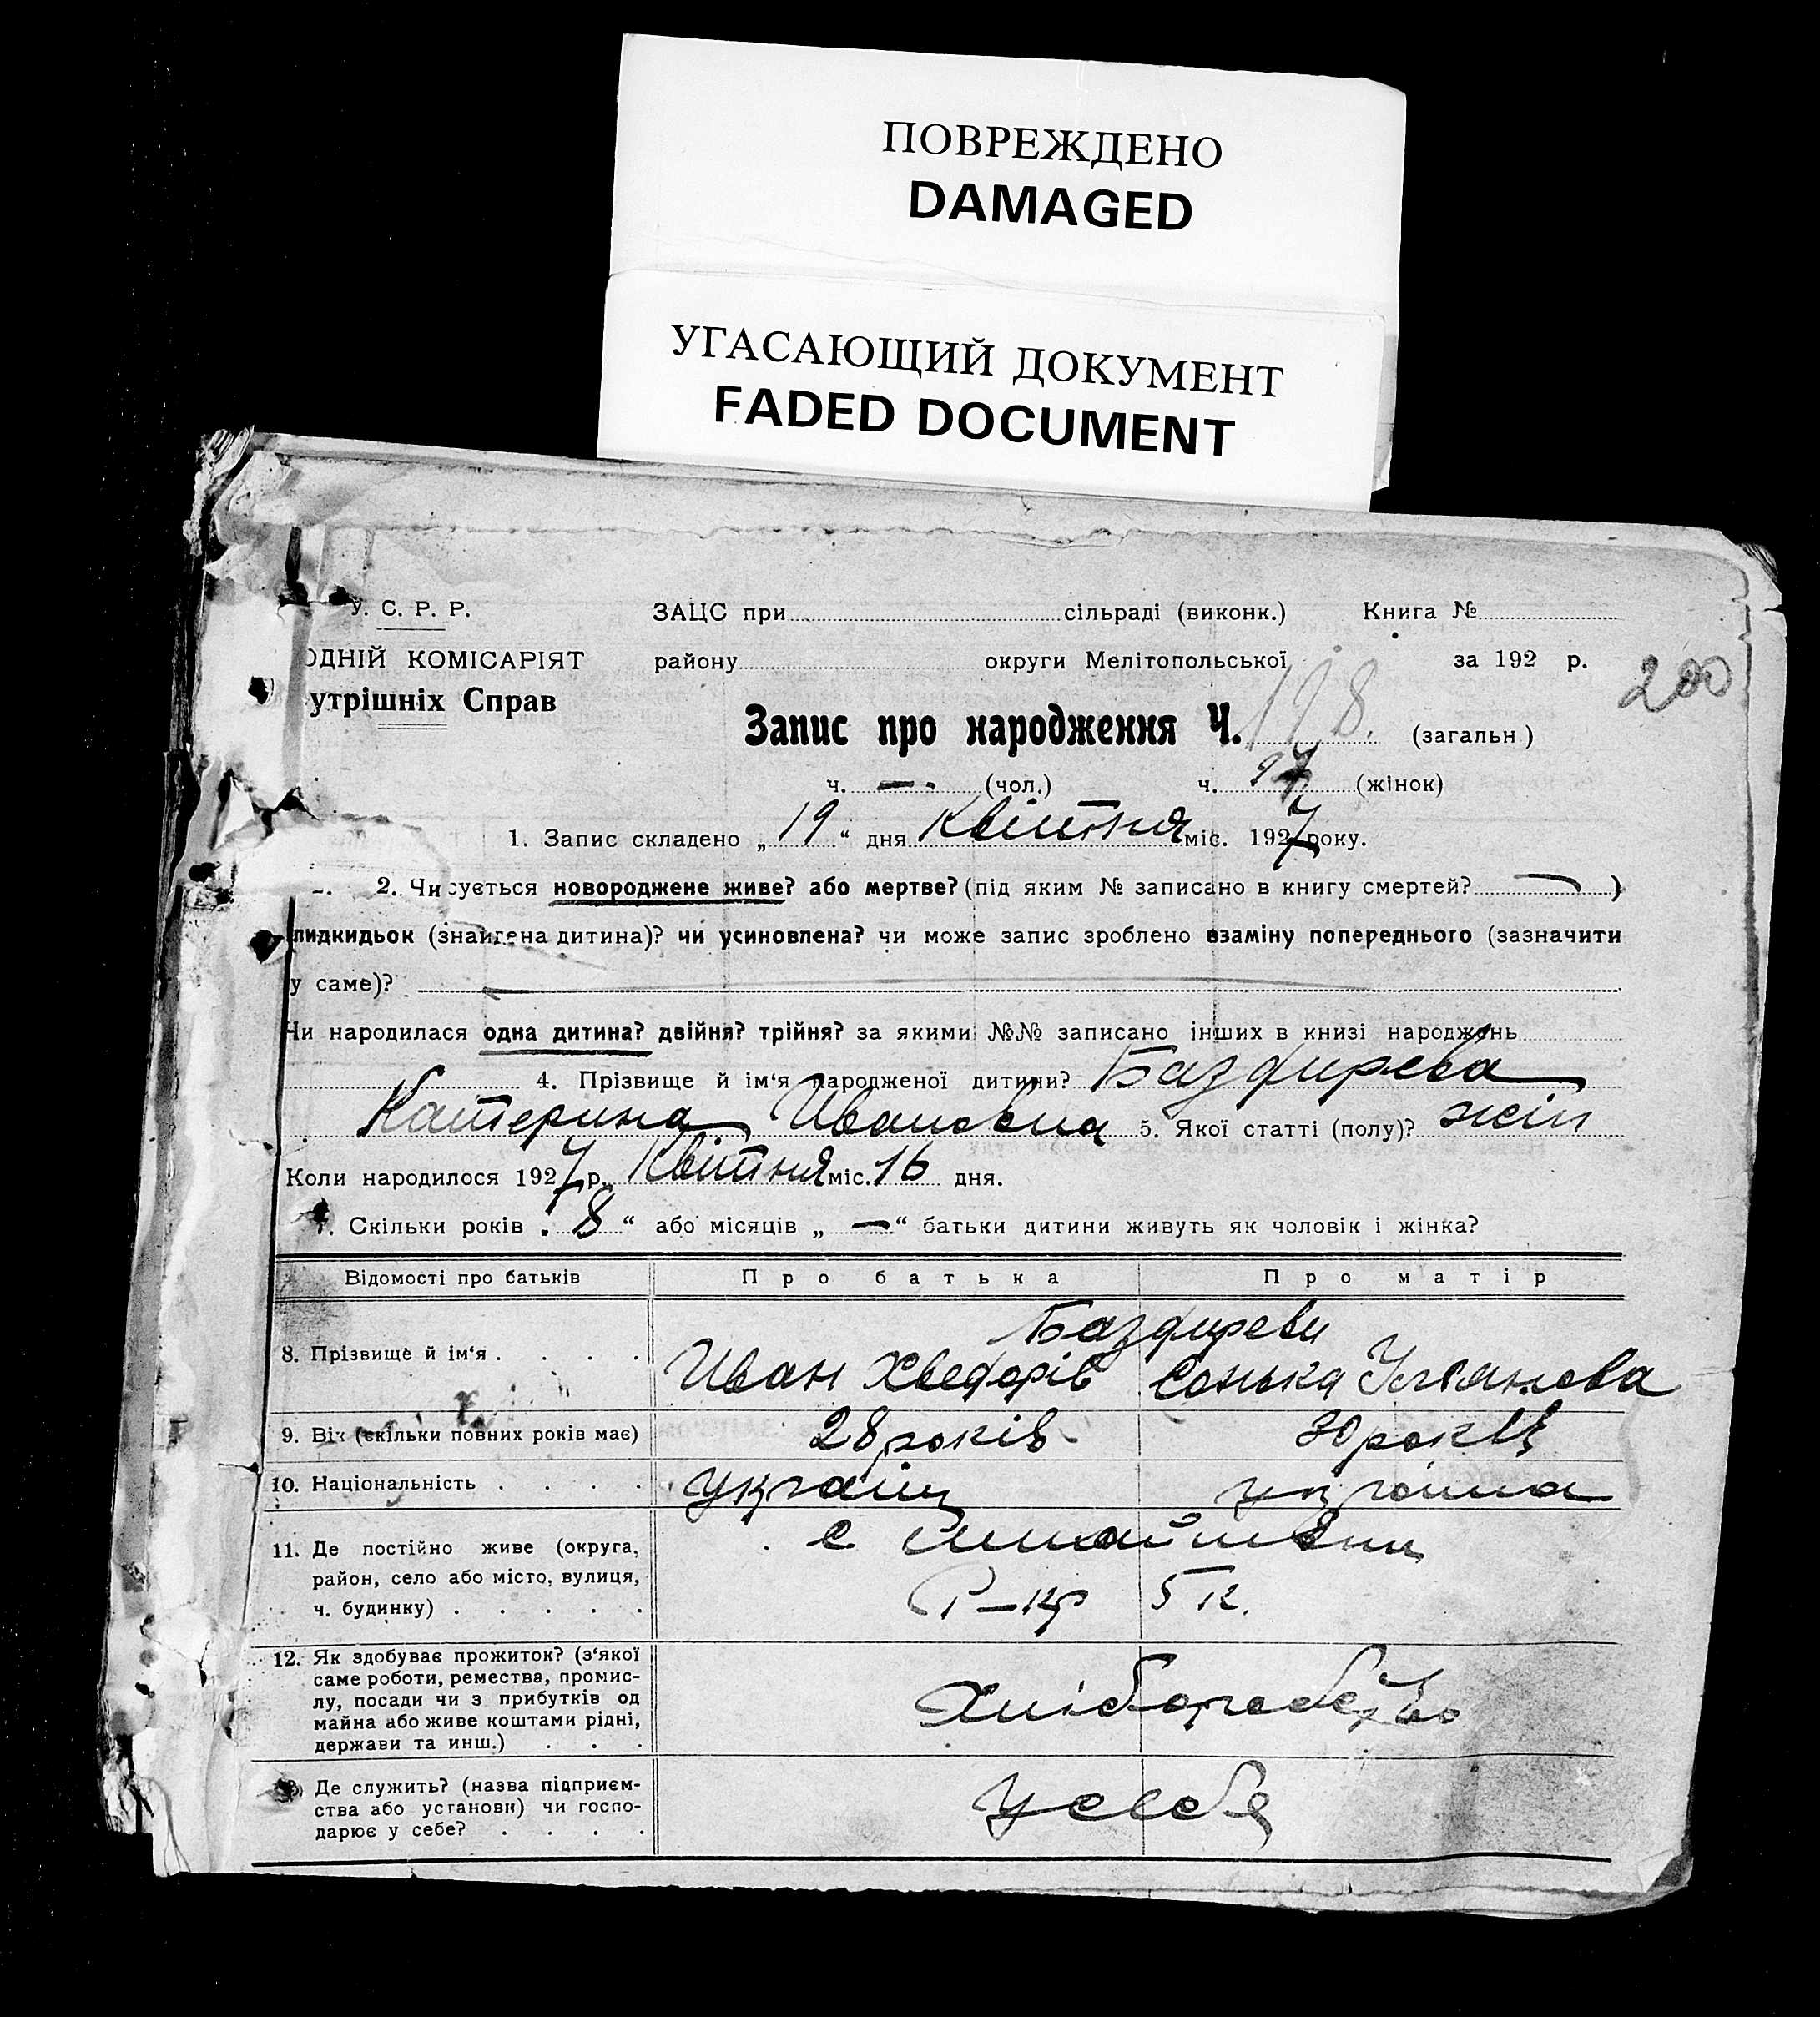 ПОВРЕЖДЕНО
DAMAGED
УГАСАЮЩИЙ ДОКУМЕНТ
FADED DOCUMENT
У. С. Р. Р. ЗАЦС при сільраді (виконк.) Книга №
ОДНІЙ КОМІСАРІЯТ району округи Мелітопольської за 192 р. 200
утрішніх Справ
Запис про народження Ч. 198. (загальн)
ч. — (чол.) ч. 97 (жінок)
1. Запис складено „19“ дня Квітня міс. 1927 року.
2. Чи сується новороджене живе? або мертве? (під яким № записано в книгу смертей? — )
підкидьок (знайдена дитина)? чи усиновлена? чи може запис зроблено взаміну попереднього (зазначити
у саме)?
Чи народилася одна дитина? двійня? трійня? за якими №№ записано інших в книзі народжень
4. Прізвище й ім‘я народженої дитини? Баздирева
Катерина Ивановна 5. Якої статті (полу)? жін
Коли народилося 1927 р. Квітня міс. 16 дня.
7. Скільки років „8“ або місяців „—“ батьки дитини живуть як чоловік і жінка?
Відомості про батьків Про батька Про матір
Баздиреви
8. Прізвище й ім‘я . . . . Иван Хведорів Сонька
9. Вік (скільки повних років має) 28 років 30 років
10. Національність . . . . україн україна
11. Де постійно живе (округа, с
район, село або місто, вулиця,
ч. будинку) . . . . .
12. Як здобуває прожиток? (з‘якої
саме роботи, ремества, промис-
лу, посади чи з прибутків од Хліборобство
майна або живе коштами рідні,
держави та инш.) . . .
Де служить? (назва підприєм-
ства або установи) чи госпо- У себе
дарює у себе? . . . .